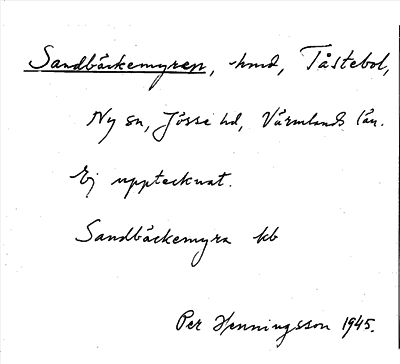 Sandbäckemyren, hmd, Tåstebol,
Ny sn, Jösse hd, Värmlands län.
Ej upptecknat.
Sandbäckemyra kb
Per Henningsson 1945.